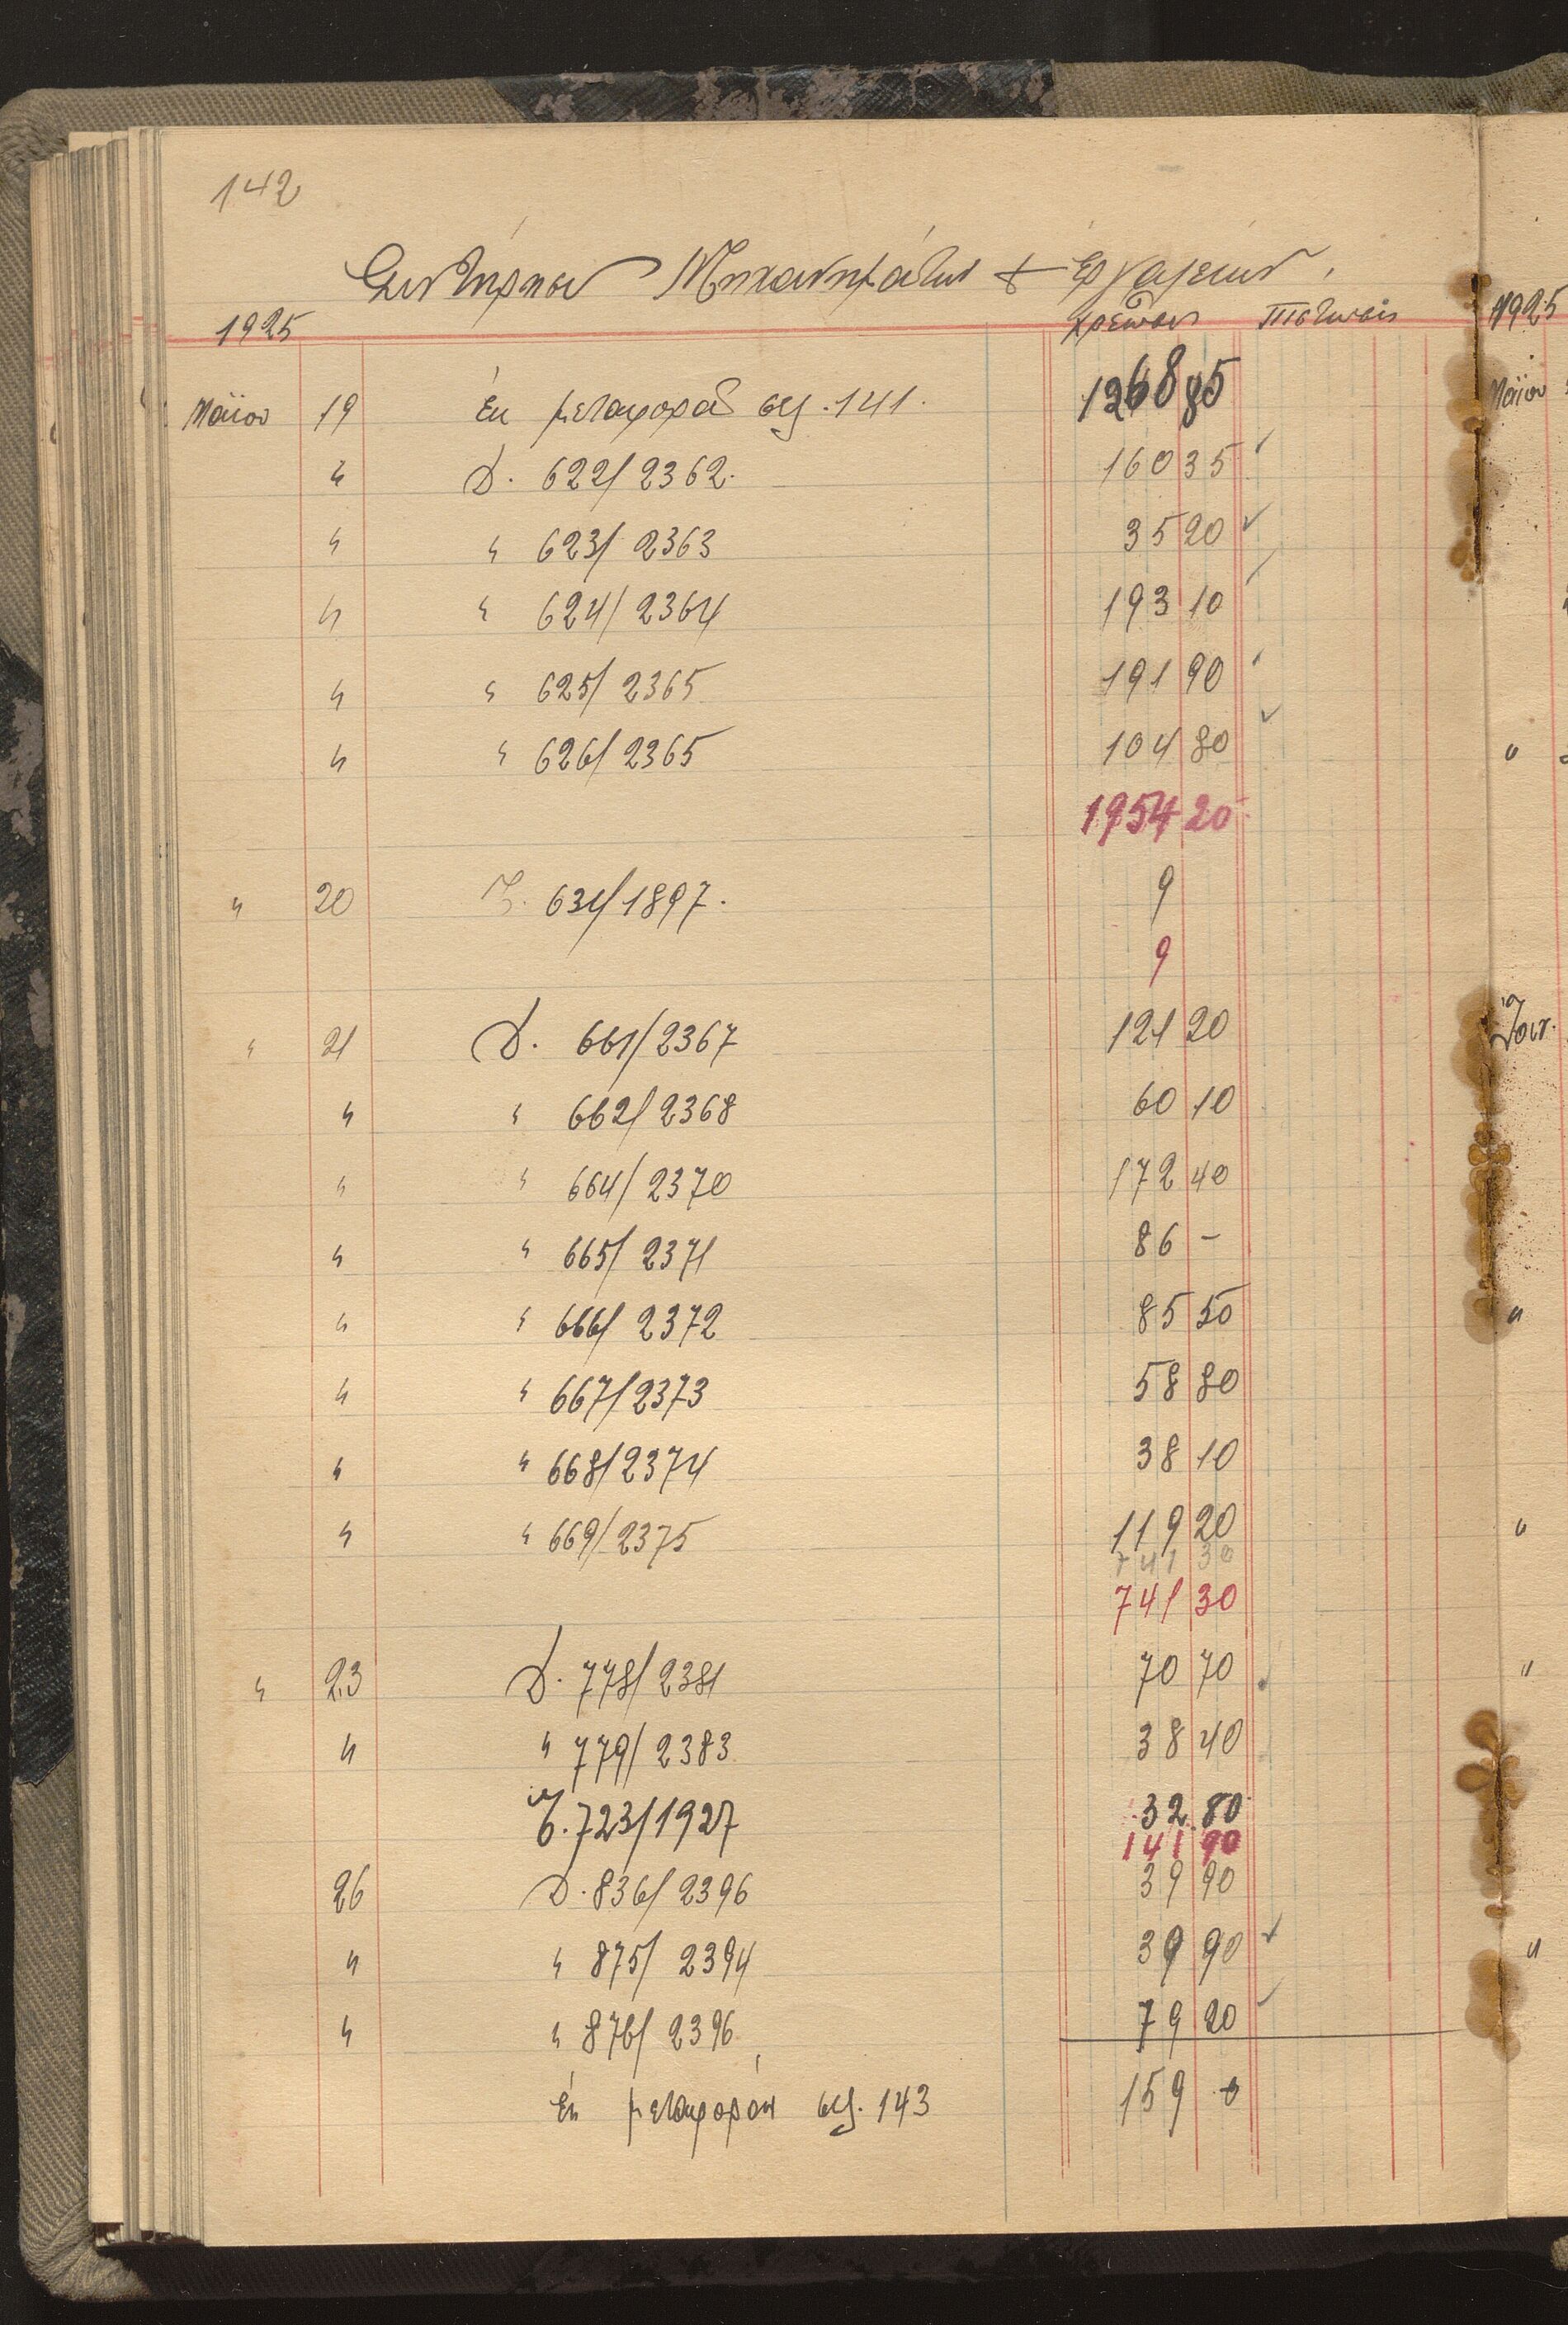 142
Συντήρησις Μηχανημάτων & Εργαλείων.
1925 Χρέωσις Πίστωσις
Μαΐου 19 Ἐκ μεταφορᾶς σελ. 141. 1268 85
" Δ. 622/2362. 160 35
" " 623/2363 35 20
" " 624/2364 193 10
" " 625/2365 191 90
" " 626/2365 104 80
1954 20
" 20 631/1897. 9
9
" 21 Δ. 661/2367 121 20
" " 662/2368 60 10
" " 664/2370 172 40
" " 665/2371 86 -
" " 666/2372 85 50
" " 667/2373 58 80
" " 668/2374 38 10
" " 669/2375 119 20
741 30
741 30
" 23 Δ. 778/2381 70 70
" " 779/2383 38 40
723/1927 32 80
141 90
26 Δ. 836/2396 39 90
" " 875/2394 39 90
" " 876/2396 79 20
Ἐκ μεταφορὰν σελ. 143 159 0
1925
Μαΐου
"
Ἰουν.
"
"
"
"